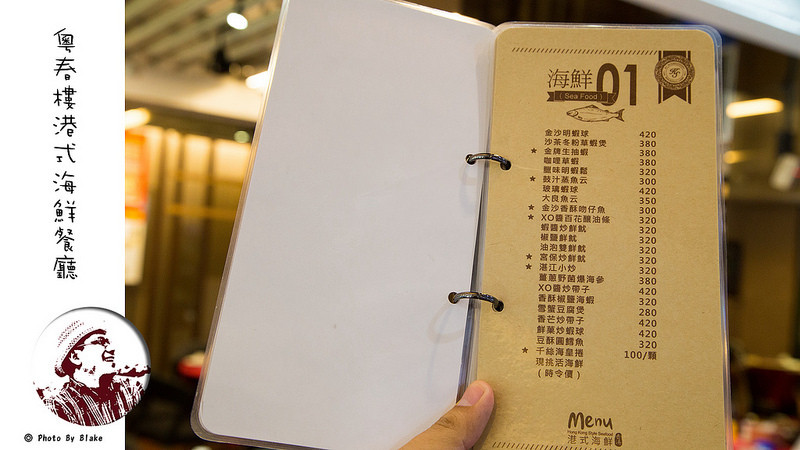 粵春樓港式海鮮餐廳
© Photo By Blake
海鮮 01
( Sea Food )
金沙明蝦球 420
沙茶冬粉草蝦煲 380
★ 金牌生抽蝦 380
咖哩草蝦 380
臘味明蝦鬆 320
★ 豉汁蒸魚云 300
玻璃蝦球 420
大良魚云 350
★ 金沙香酥吻仔魚 300
★ XO醬百花釀油條 320
蝦醬炒鮮魷 320
椒鹽鮮魷 320
油泡雙鮮魷 320
★ 宮保炒鮮魷 320
★ 湛江小炒 320
薑蔥野菌爆海參 380
XO醬炒帶子 420
香酥椒鹽海蝦 320
雪蟹豆腐煲 280
香芒炒帶子 420
鮮菓炒蝦球 420
豆酥圓鱈魚 320
★ 千絲海皇捲 100/顆
現挑活海鮮
( 時令價 )
Menu
Hong Kong Style Seafood
港式海鮮